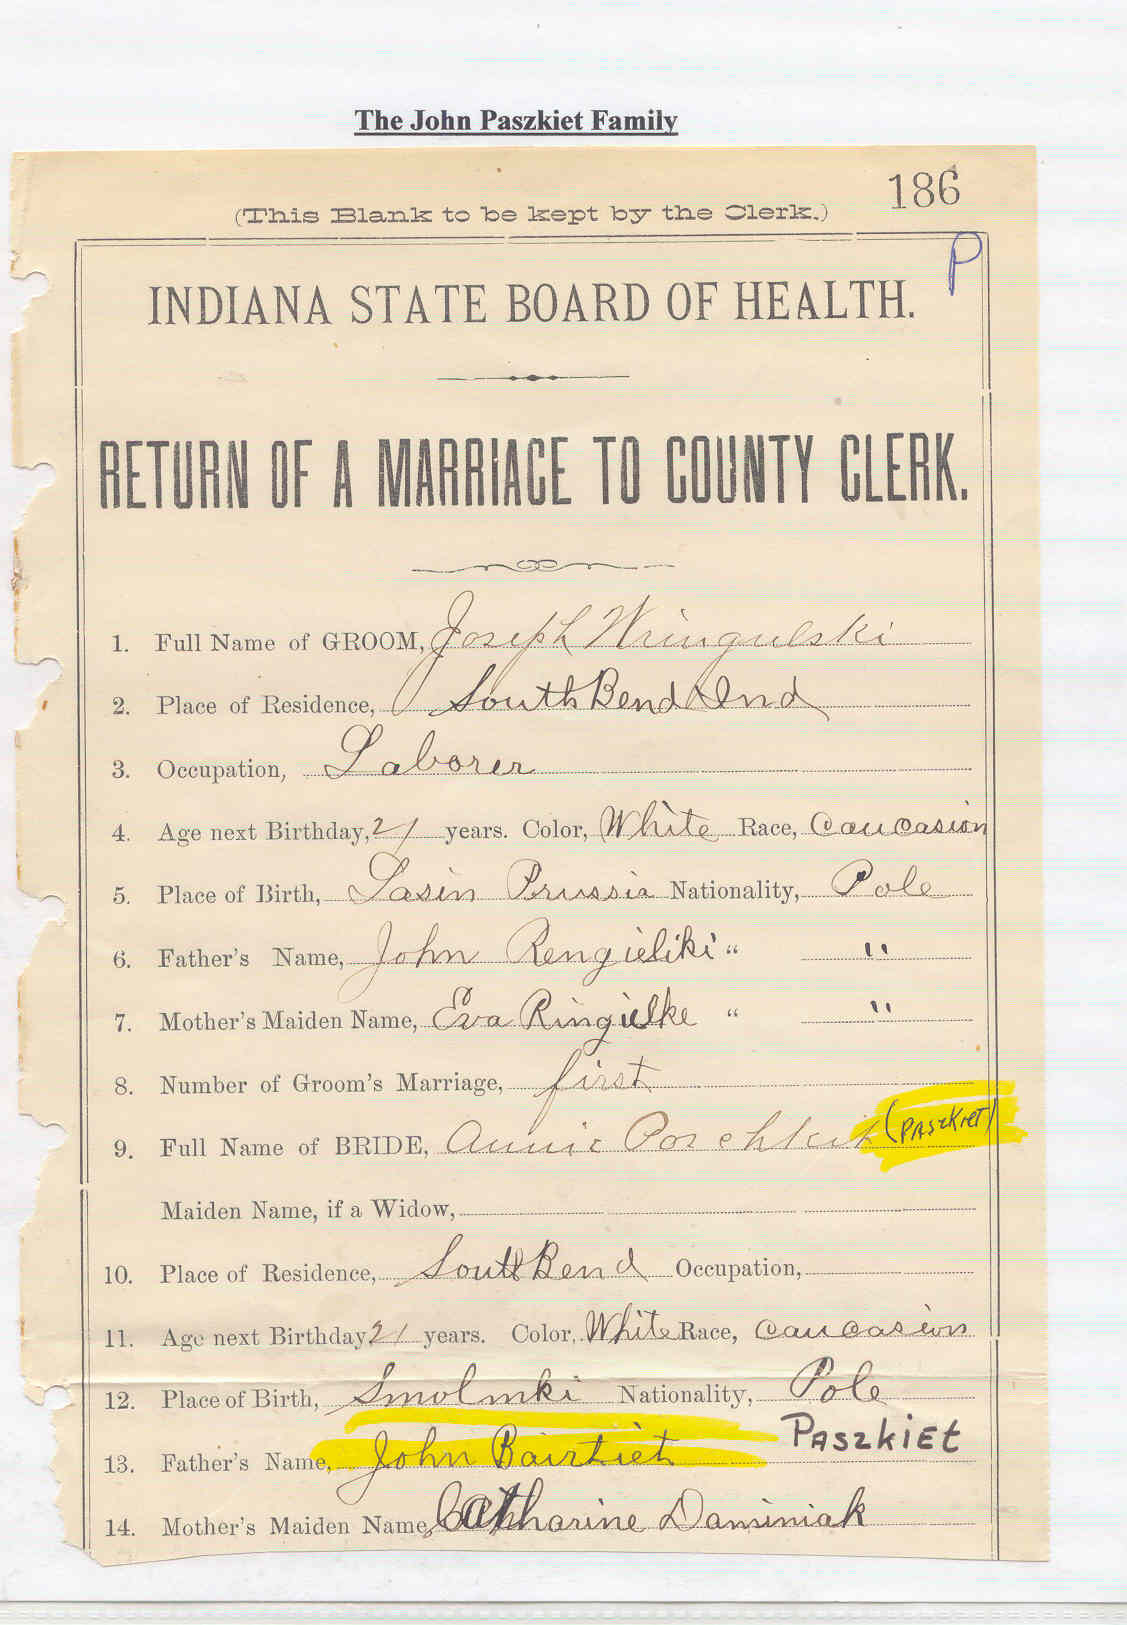 The John Paszkiet Family
186
(This Blank to be kept by the Clerk.)
P
INDIANA STATE BOARD OF HEALTH.
RETURN OF A MARRIAGE TO COUNTY CLERK.
1. Full Name of GROOM, Joseph Wringulski
2. Place of Residence, South Bend Ind
3. Occupation, Laborer
4. Age next Birthday, 21 years. Color, White Race, Caucasion
5. Place of Birth, Lasin Prussia Nationality, Pole
6. Father's Name, John Rengieliki " "
7. Mother's Maiden Name, Eva Ringielke " "
8. Number of Groom's Marriage, first
9. Full Name of BRIDE, Annie Poschkit (PASZKIET)
Maiden Name, if a Widow,
10. Place of Residence, South Bend Occupation,
11. Age next Birthday 21 years. Color, White Race, Caucasion
12. Place of Birth, Smolmki Nationality, Pole
13. Father's Name, John Bairtiet PASZKIET
14. Mother's Maiden Name, Catharine Daminiak